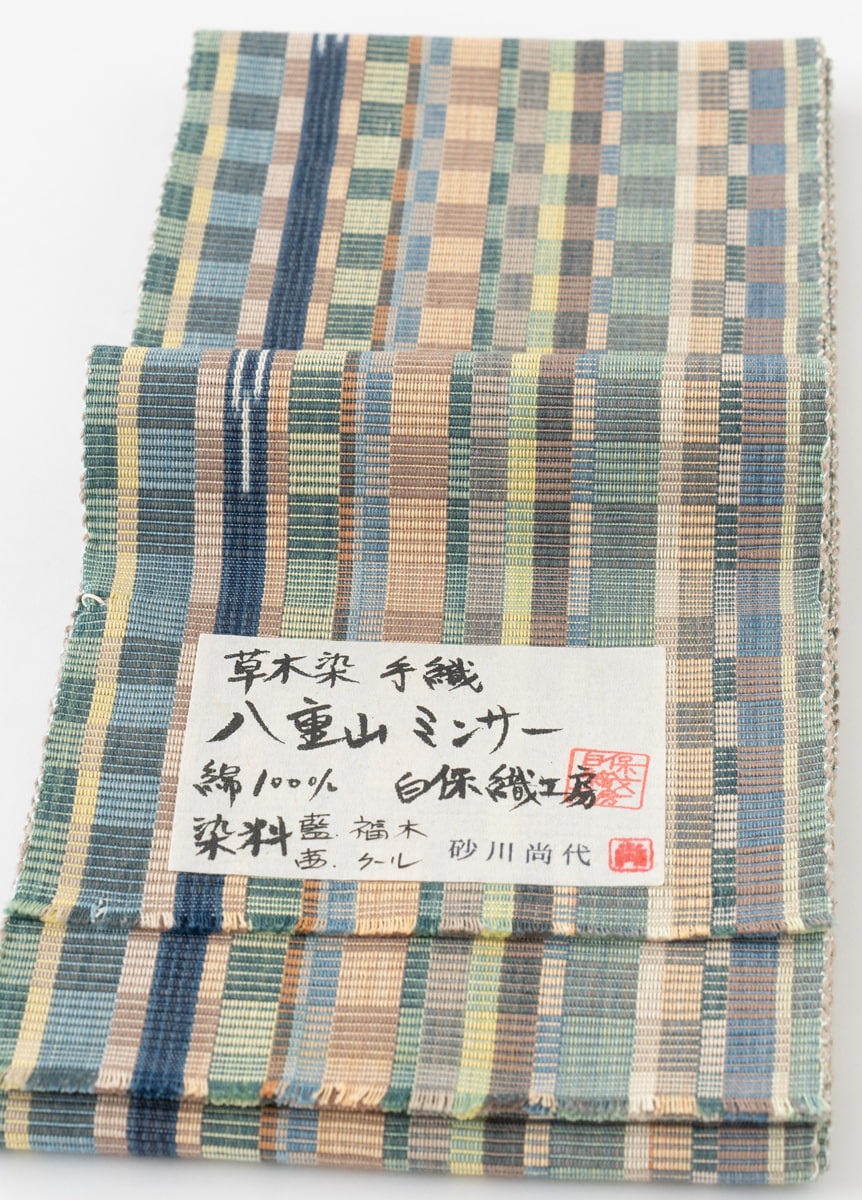 草木染 手織
八重山 ミンサー
綿100% 白保織工房
染料 藍. 福木
あ. クール
砂川尚代